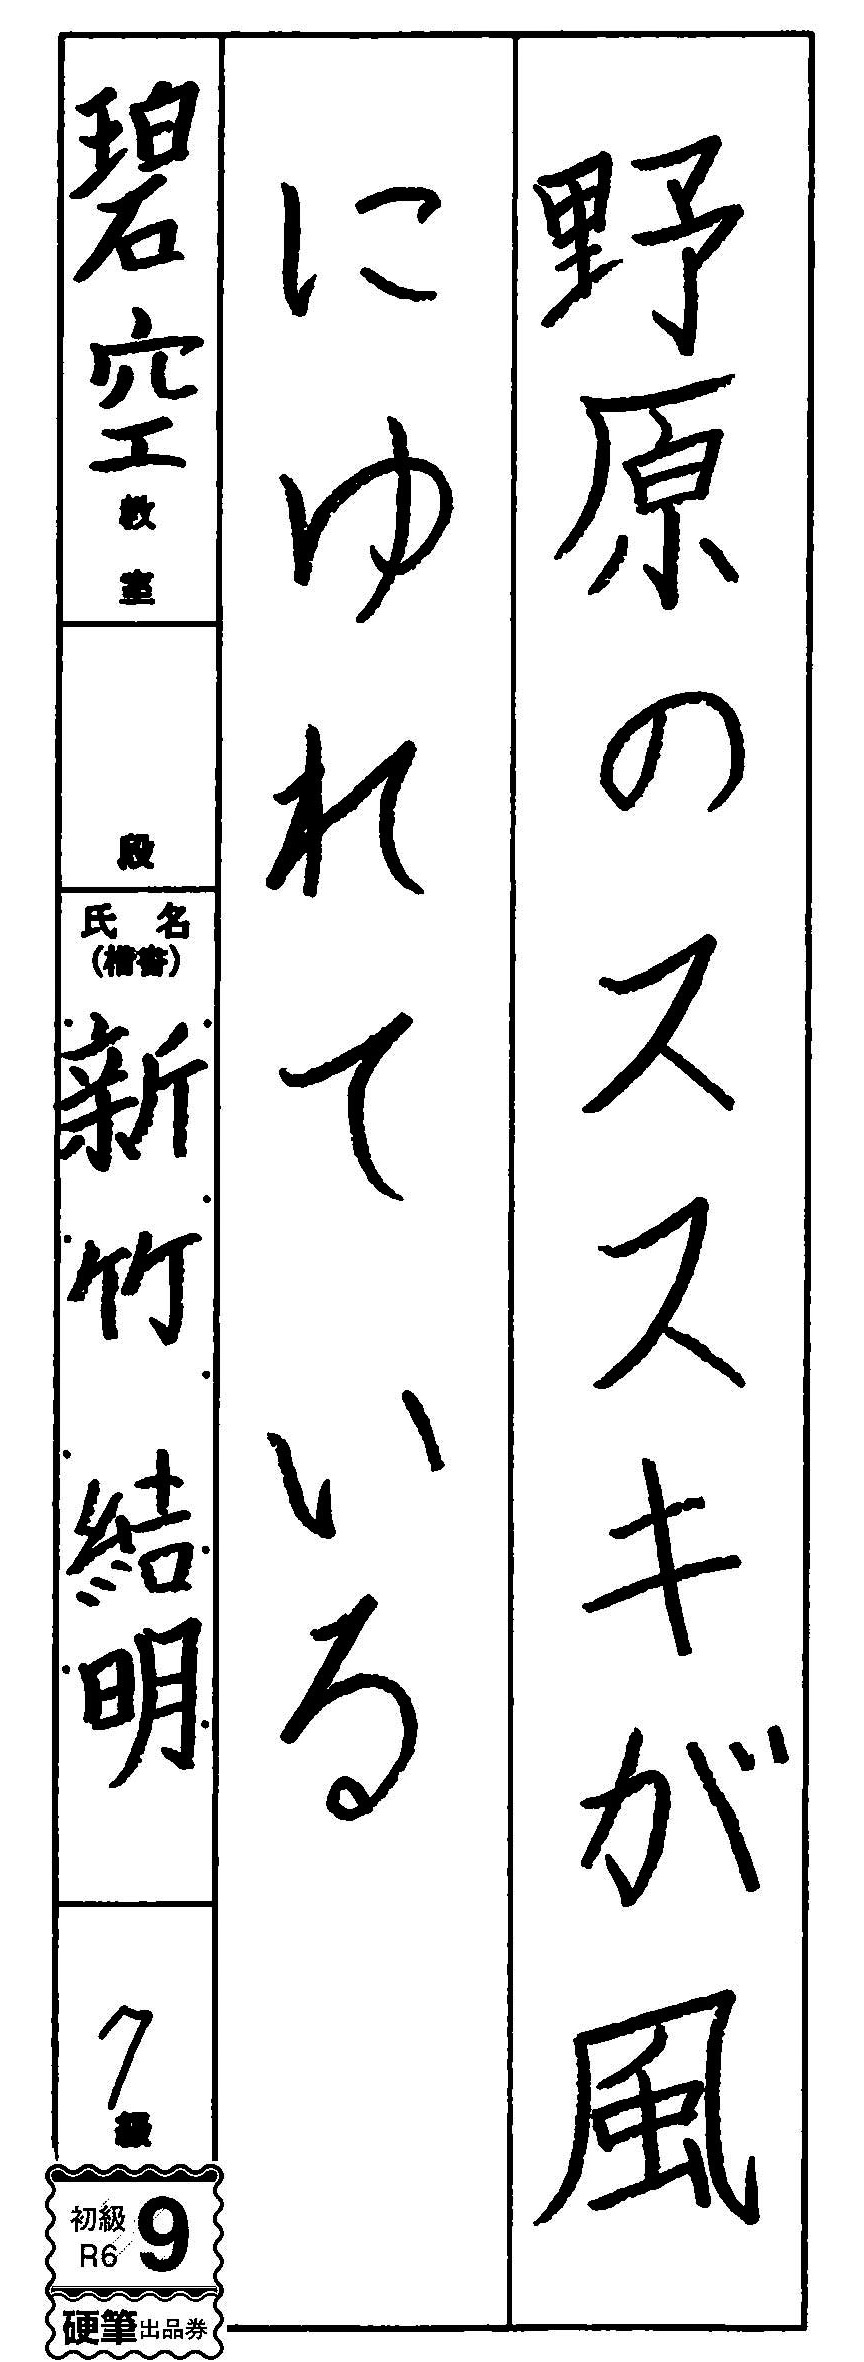 野原のススキが風
にゆれている
碧空教室
段
氏名
(楷書)
新竹結明
7級
初級
R6
9
硬筆出品券